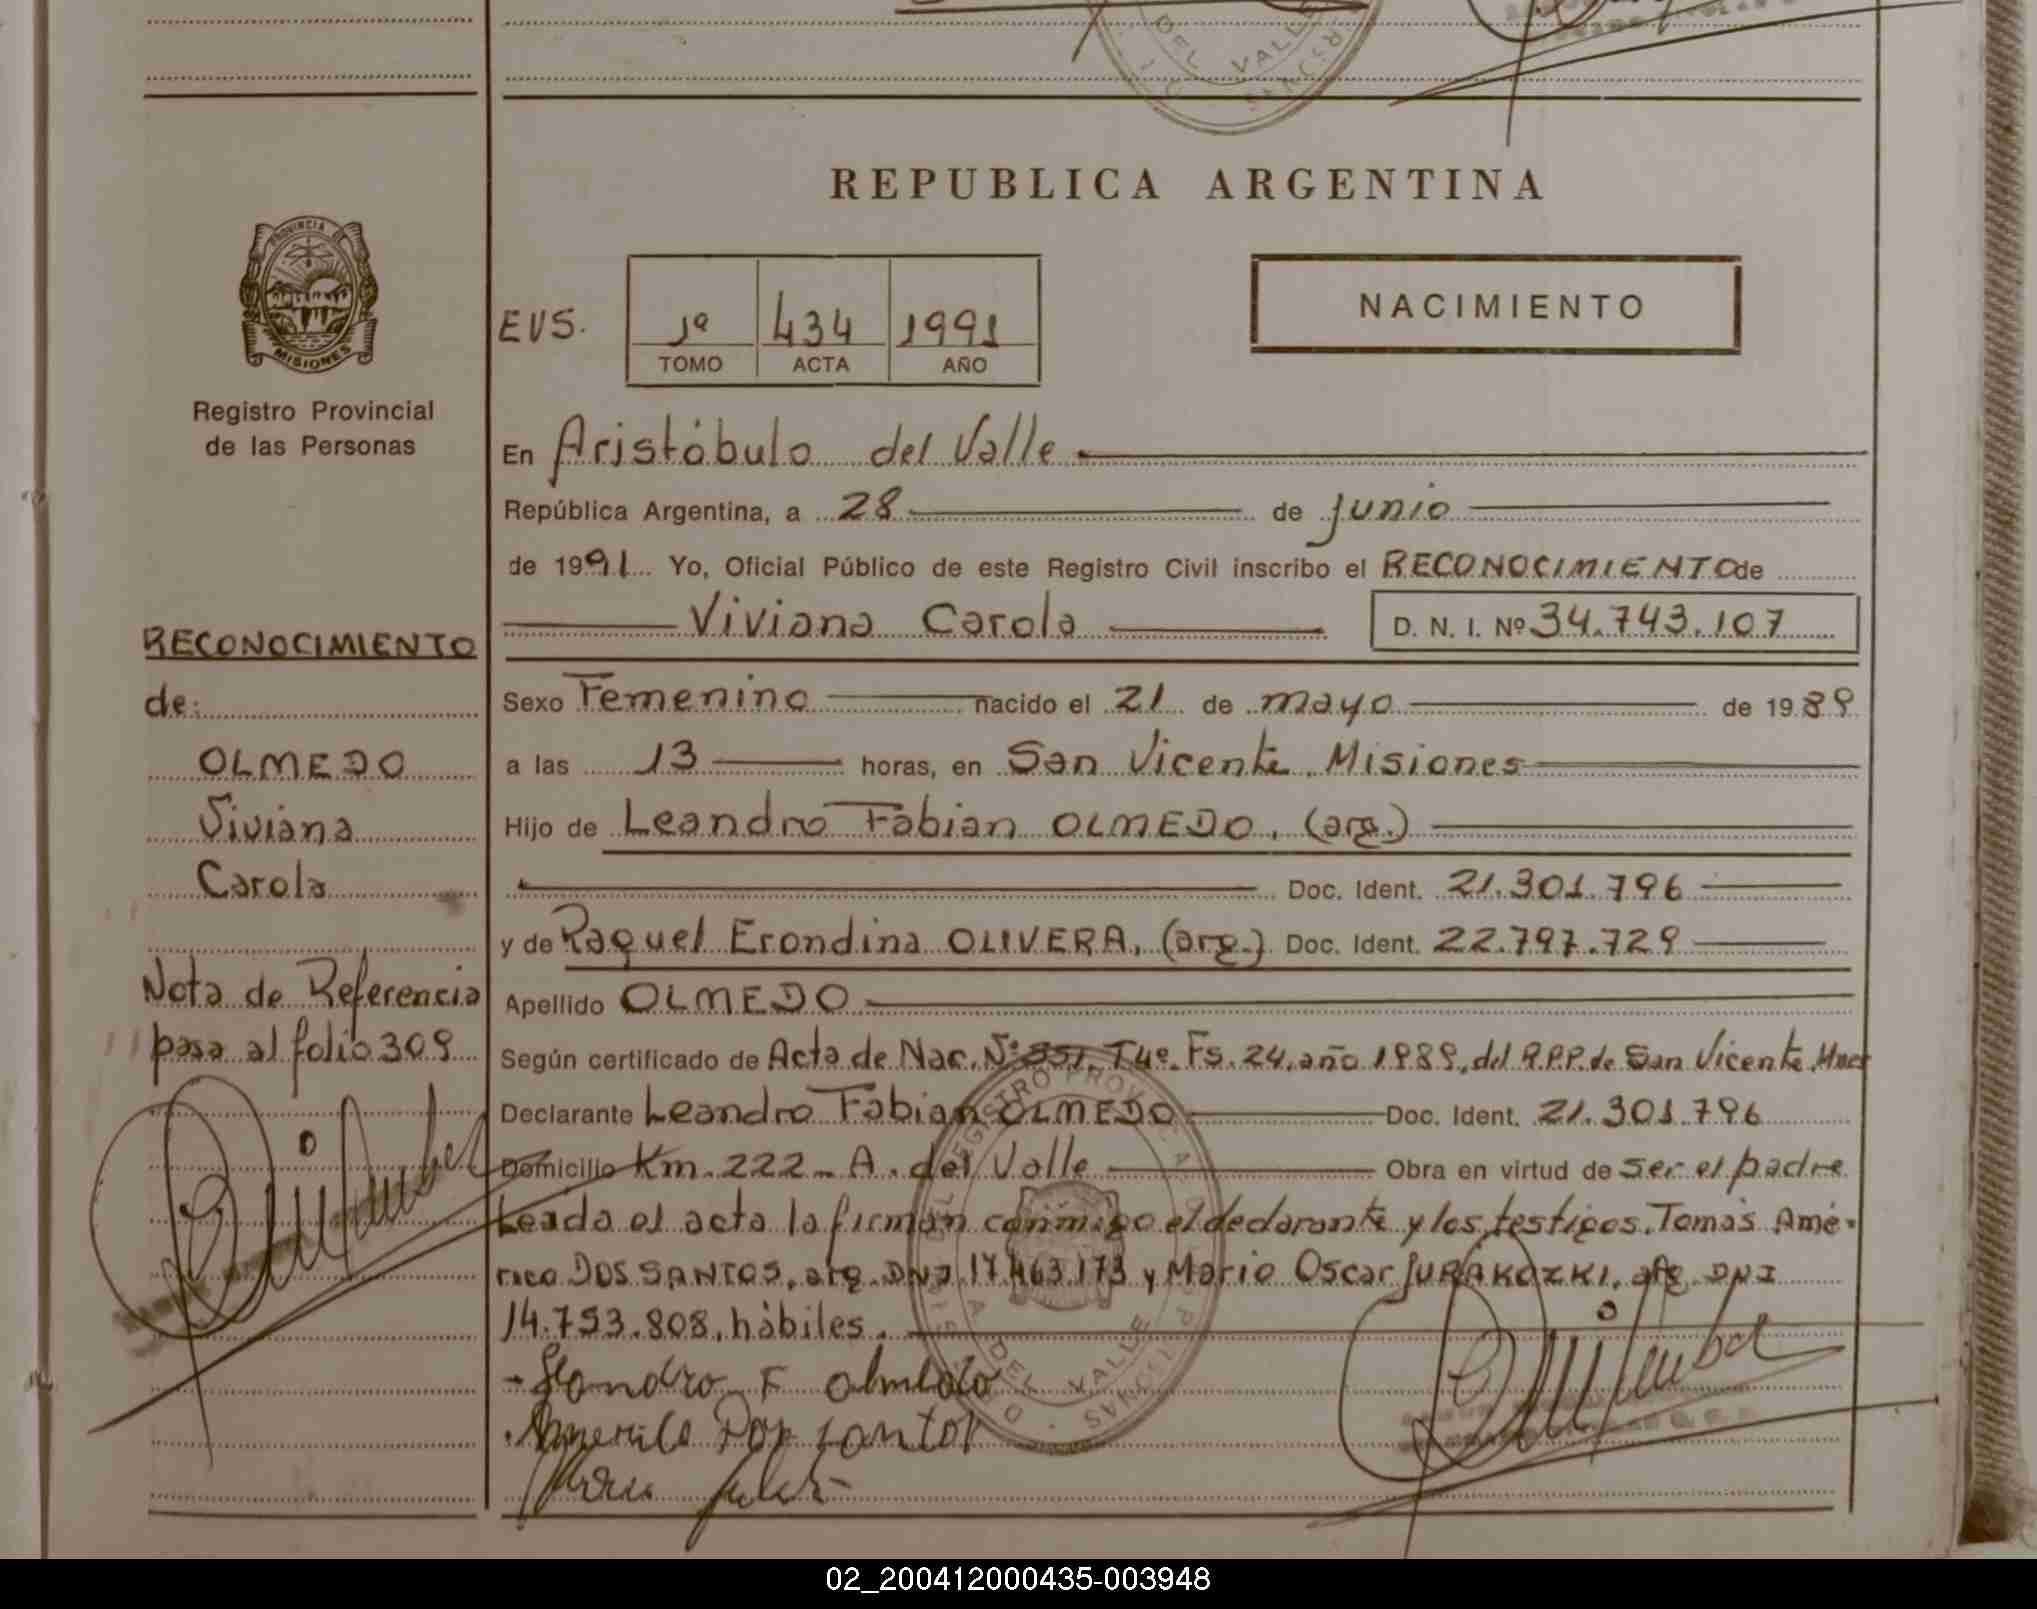 DEL VALLE
REPUBLICA ARGENTINA
PROVINCIA DE
MISIONES
Registro Provincial
de las Personas
EVS.
1º 434 1991
TOMO ACTA AÑO
NACIMIENTO
En Aristóbulo del Valle
República Argentina, a 28 de Junio
de 1991 Yo, Oficial Público de este Registro Civil inscribo el RECONOCIMIENTO de
Viviana Carola D. N. I. Nº 34.743.107
Sexo Femenino nacido el 21 de mayo de 1989
a las 13 horas, en San Vicente, Misiones
Hijo de Leandro Fabian OLMEDO, (arg.)
Doc. Ident. 21.301.796
y de Raquel Erondina OLIVERA, (arg.) Doc. Ident. 22.797.729
Apellido OLMEDO
Según certificado de Acta de Nac. Nº 351, T4º. Fs. 24, año 1989, del R.P.P. de San Vicente, Mnes
Declarante Leandro Fabian OLMEDO Doc. Ident. 21.301.796
Domicilio Km. 222 - A. del Valle Obra en virtud de ser el padre
Leida el acta la firman conmigo el declarante y los testigos, Tomás Amé-
rico DOS SANTOS, arg. DNI 17.463.173 y Mario Oscar JURAKOZKI, arg. DNI
14.793.808, hábiles.
RECONOCIMIENTO
de:
OLMEDO
Viviana
Carola
Nota de Referencia
pasa al folio 309
REGISTRO PROVINCIAL DE LAS PERSONAS
A. DEL VALLE
Leandro F Olmedo
Americo Dos Santos
02_200412000435-003948